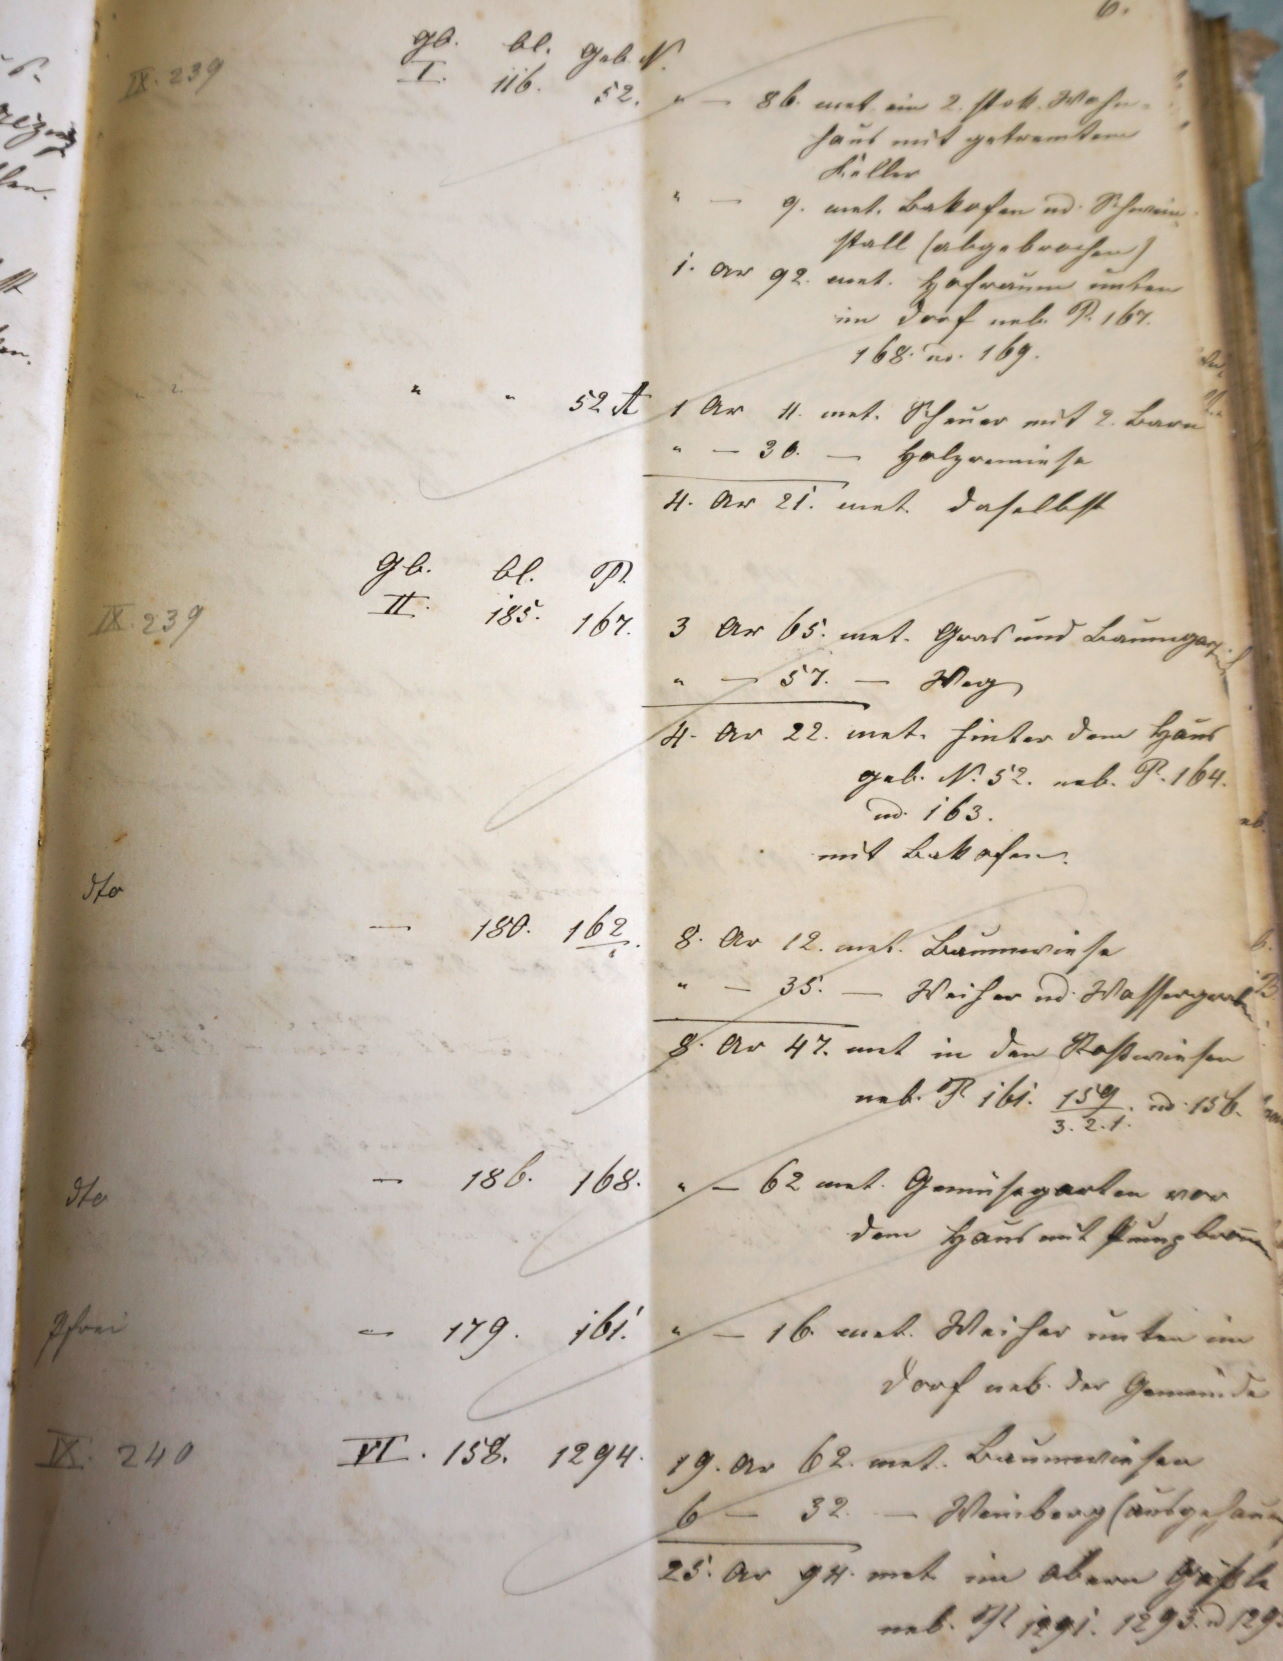 6.
Gb. bl. Geb. N.
IX. 239 I. 116. 52. " — 86. met. ein 2. stok. Wohn-
haus mit getremtem
Keller
" — 9. met. Bakofen ud. Schwein-
stall (abgebrochen)
1. Ar 92. met. Hofraum unten
im Dorf neb. P. 167.
168. u. 169.
" " " " 52 A 1 Ar 11. met. Scheuer mit 2. Barn
" — 30. — Holzremiese
4. Ar 21. met. daselbst
Gb. bl. P.
IX. 239 II. 185. 167. 3 Ar 65. met. Gras und Baumgart
" — 57. — Weg
4. Ar 22. met. hinter dem Haus
geb. N. 52. neb. P. 164.
ud. 163.
mit Bakofen.
dto — 180. 162/1. 8. Ar 12. met. Baumwiese
" — 35. — Weiher ud. Wassergraben
8. Ar 47. met in den
neb. P. 161. 159/3.2.1. ud. 156.
dto — 186. 168. " — 62 met. Gemüsegarten vor
dem Haus mit Pumpbrunen
— 179. 161. " — 16 met. Weiher unten im
Dorf neb. der Gemeinde
IX. 240 VI. 158. 1294. 19. Ar 62. met. Baumwiesen
6 — 32. — Weinberg (ausgehaue
25. Ar 94. met im obern
neb. P. 1291. 1293. d 129